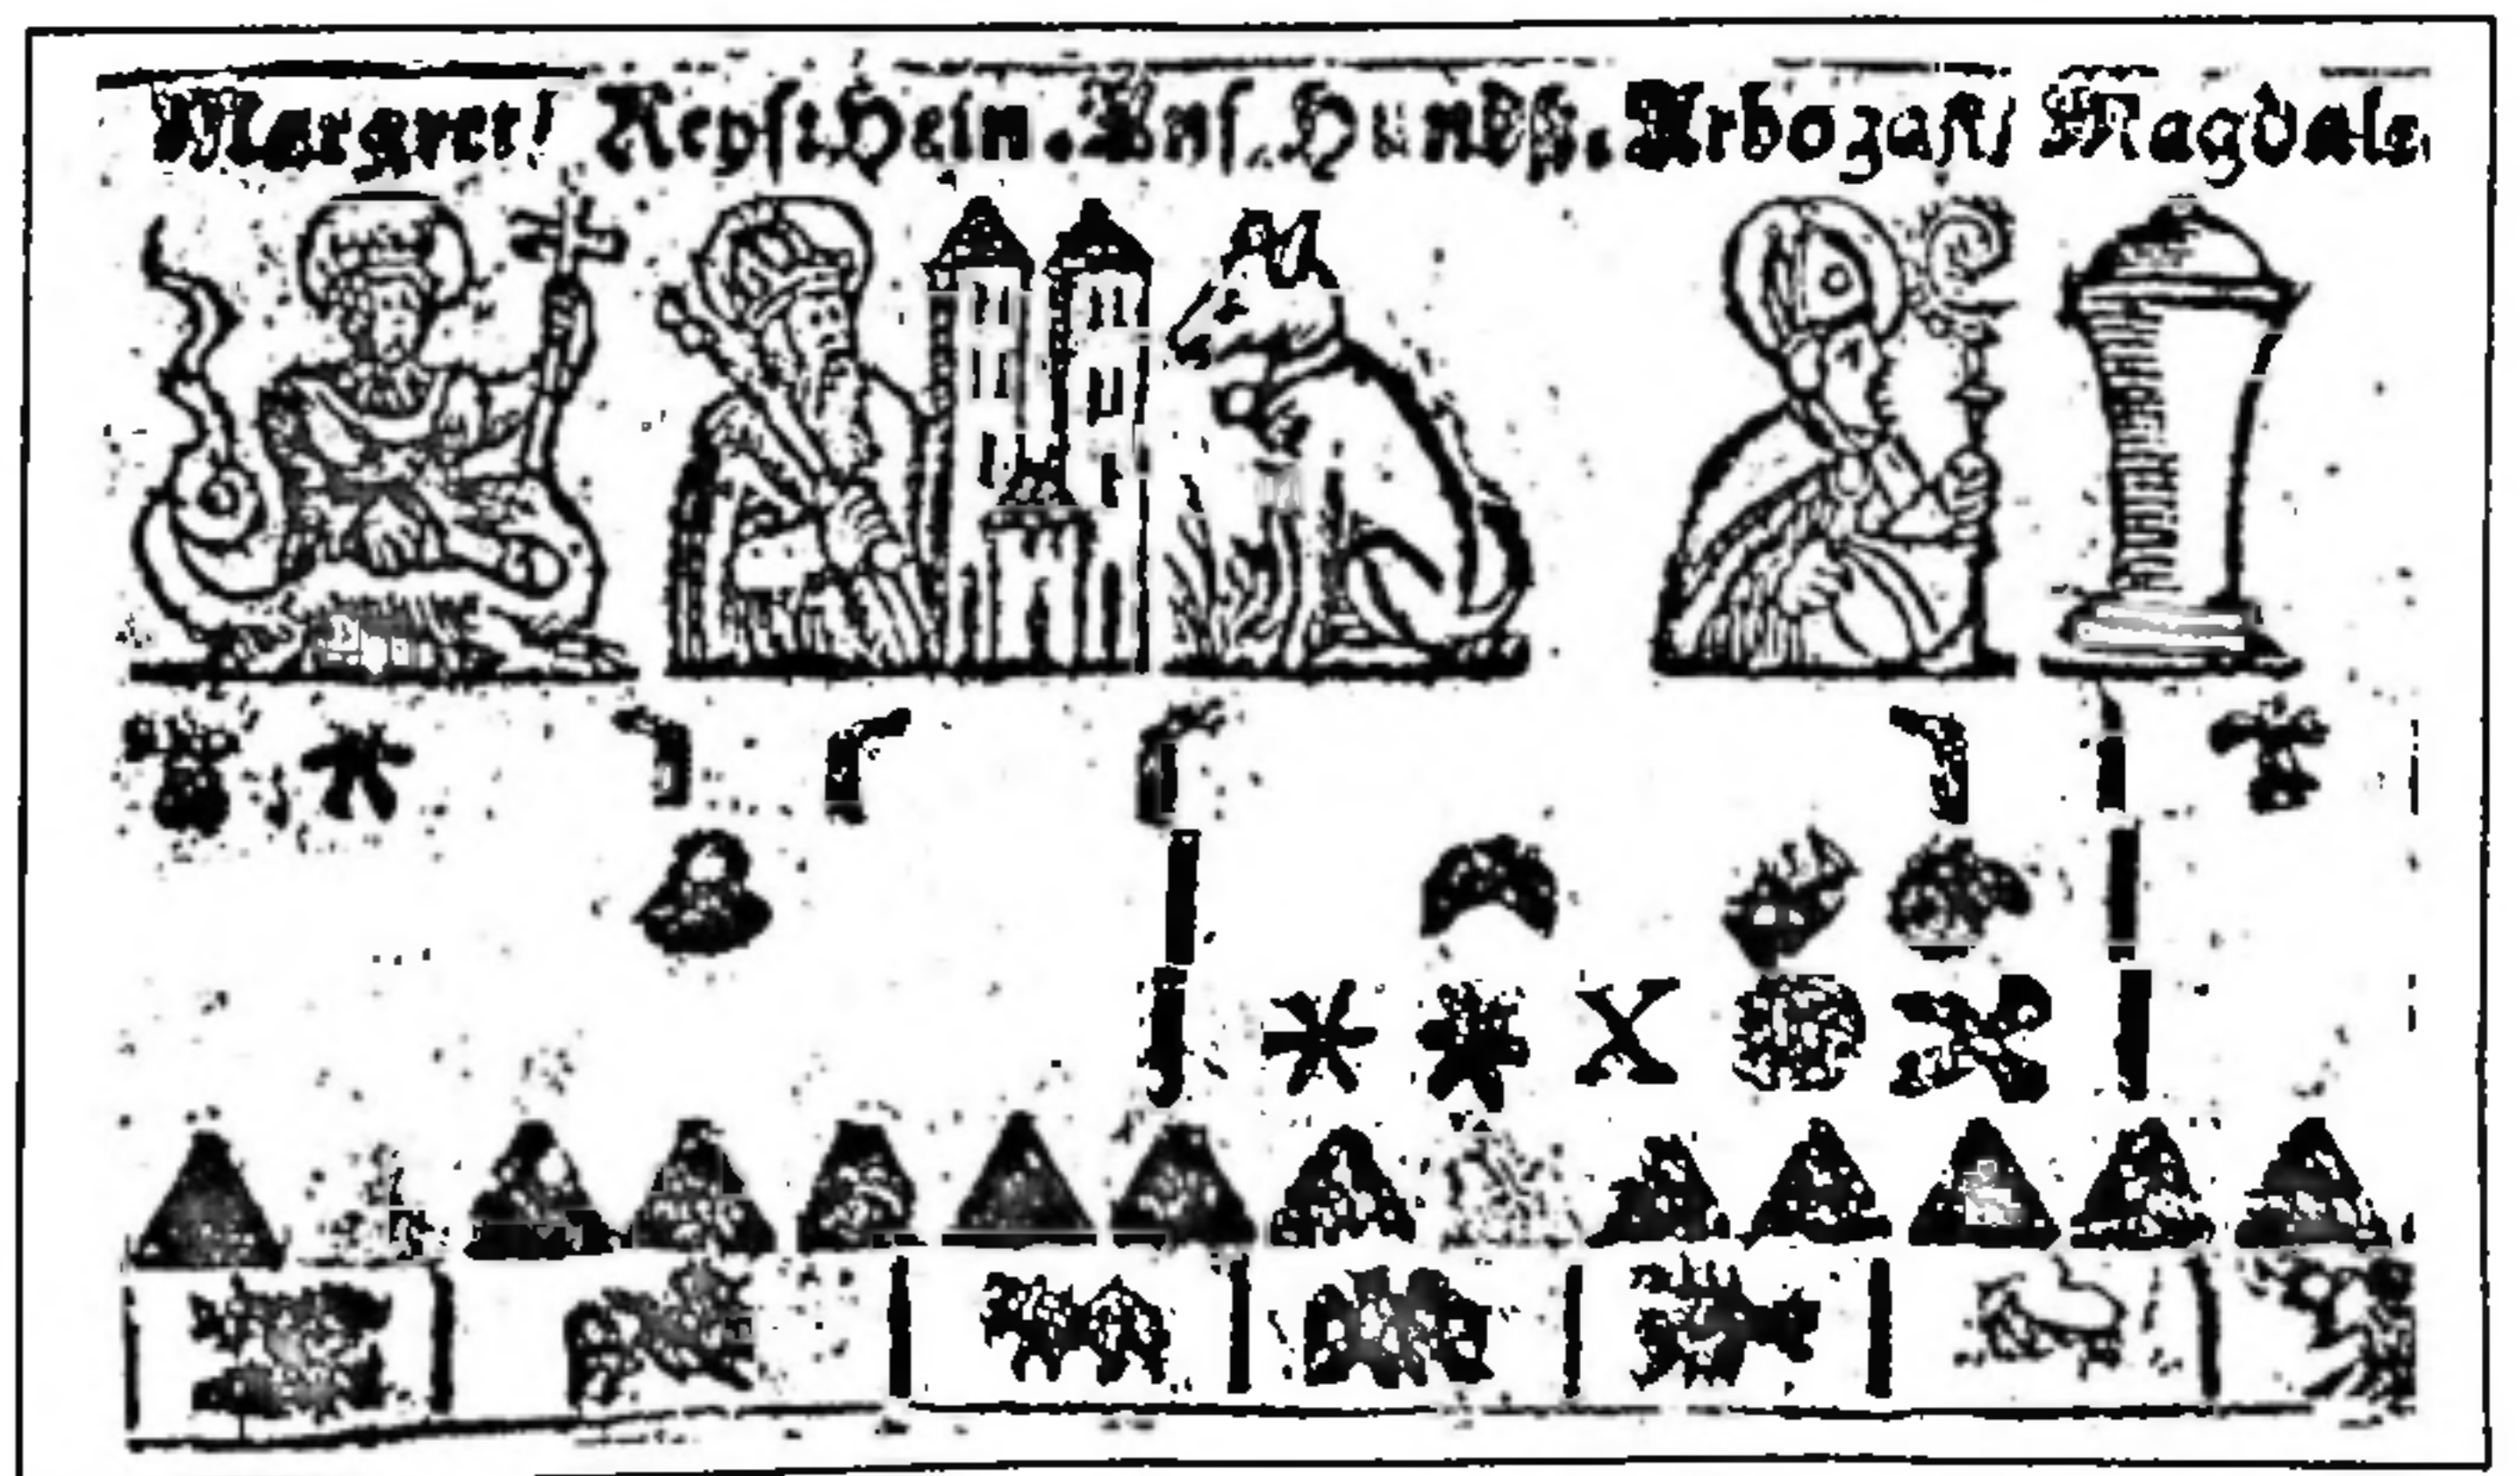 Margret/ Keyst.Hein.Anf.Hundsz.Arbogast/ Magdale.
X